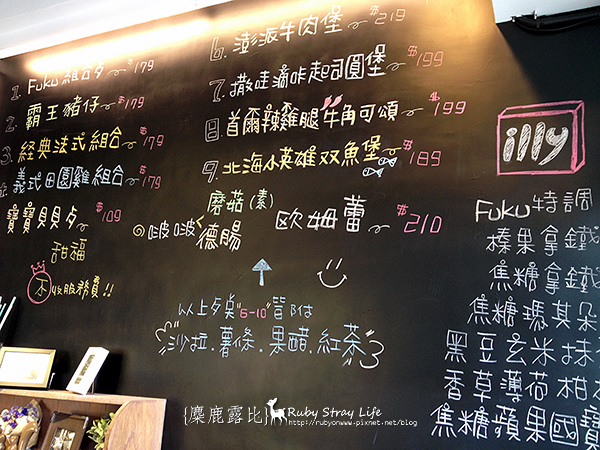 1. Fuku 組合歺 $179
2. 霸王豬仔 $179
3. 経典法式組合 $179
義式田園雞組合 $179
寶寶貝貝歺 $109
甜福
不收服務費!!
6. 澎派牛肉堡 $219
7. 撒哇滴咔起司圓堡 $199
8. 首爾辣雞腿牛角可頌 $199
9. 北海小英雄双魚堡 $189
啵啵 蘑菇(素) 德腸 歐姆蕾 $210
以上歺点"6-10"皆附
沙拉.薯條.果醋.紅茶
illy
Fuku特調
榛果拿鐵
焦糖拿鐵
焦糖瑪其朵
黑豆玄米抹
香草薄荷柚
焦糖蘋果國寶
{麋鹿露比} Ruby Stray Life
http://rubyonwww.pixnet.net/blog